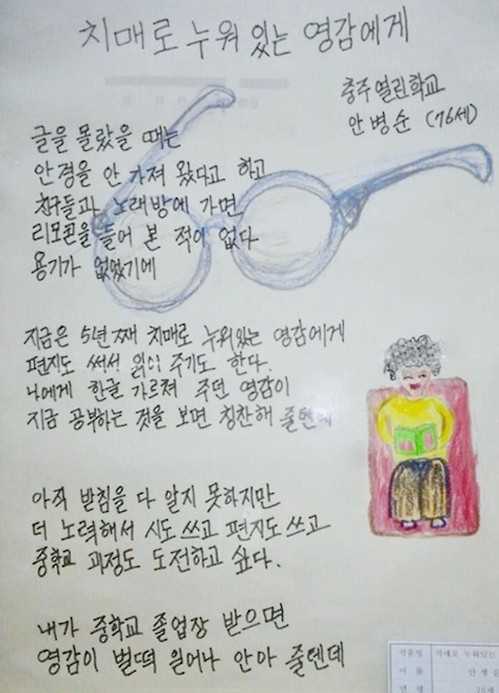 치매로 누워 있는 영감에게
충주열린학교
안병순 (76세)
글을 몰랐을 때는
안경을 안 가져 왔다고 하고
친구들과 노래방에 가면
리모콘을 들어 본 적이 없다
용기가 없었기에
지금은 5년째 치매로 누워있는 영감에게
편지도 써서 읽어 주기도 한다.
나에게 한글 가르쳐 주던 영감이
지금 공부하는 것을 보면 칭찬해 줄텐데
아직 받침을 다 알지 못하지만
더 노력해서 시도 쓰고 편지도 쓰고
중학교 과정도 도전하고 싶다.
내가 중학교 졸업장 받으면
영감이 벌떡 일어나 안아 줄텐데
작품명 치매로 누워있는
이름 안병